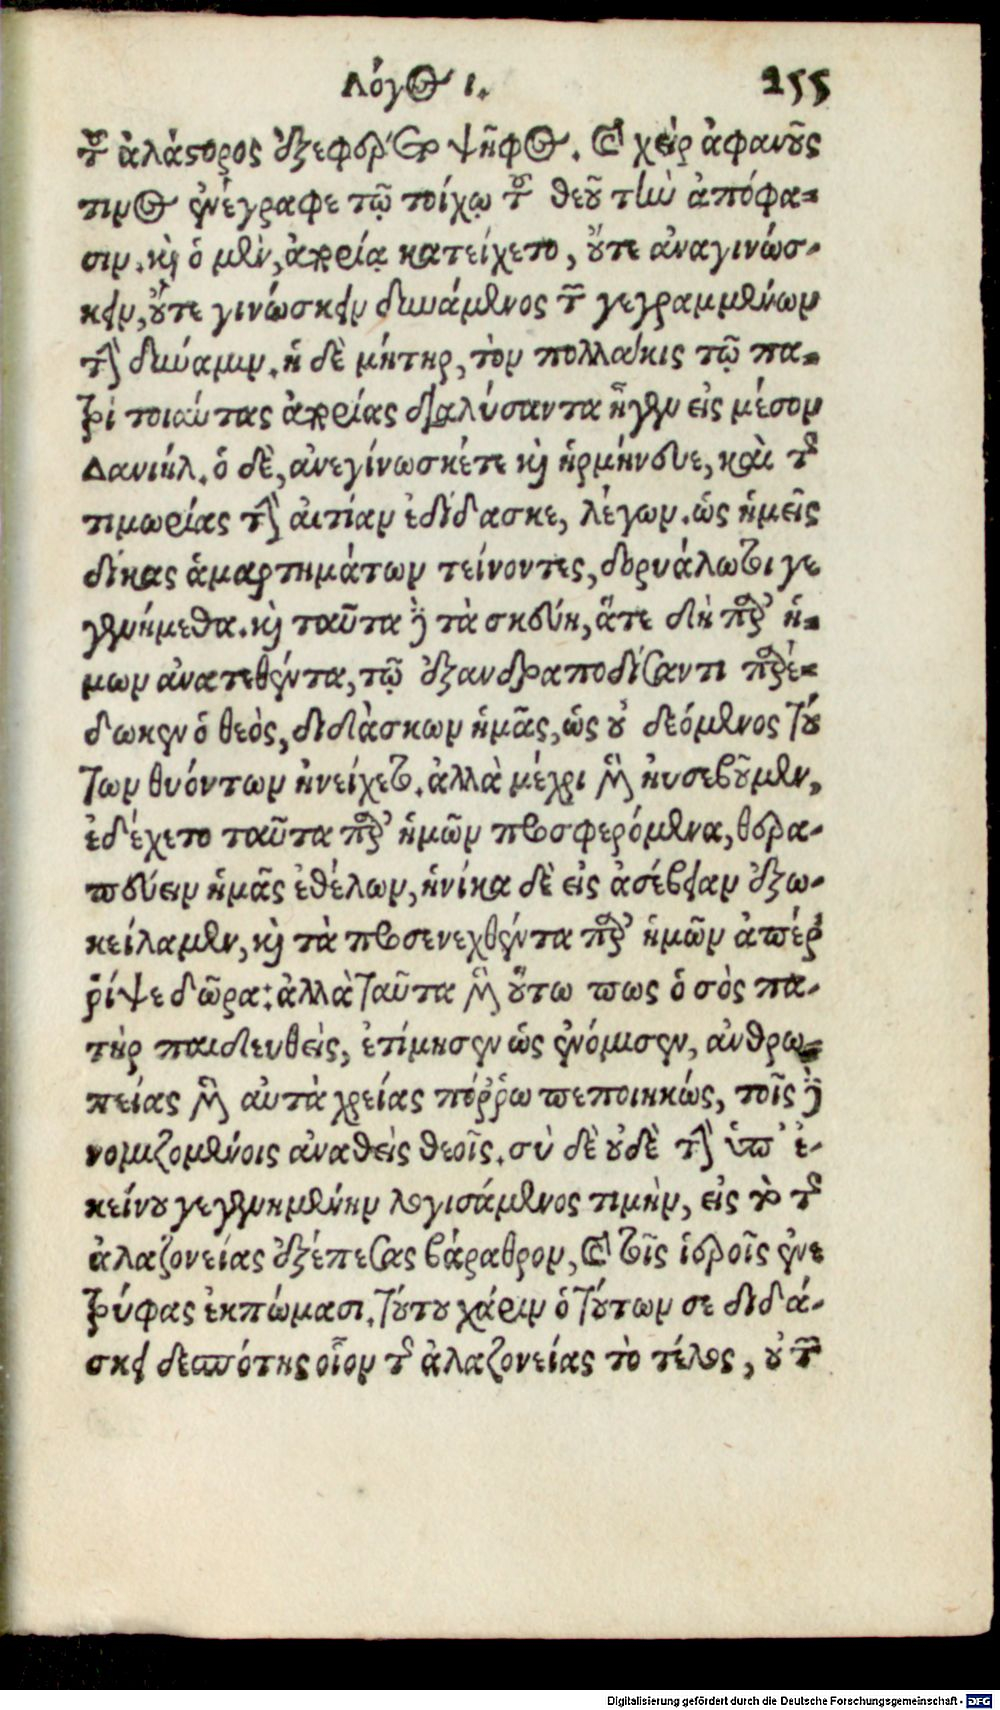 Λόγος ι. 255
τοῦ ἀλάστορος ἐξεφέρετο ψῆφος. καὶ χεὶρ ἀφανοῦς
τινος ἐνέγραφε τῷ τοίχῳ τοῦ θεοῦ τὴν ἀπόφα-
σιν. καὶ ὁ μὲν, ἀπορίᾳ κατείχετο, οὔτε ἀναγινώσ-
κειν, οὔτε γινώσκειν δυνάμενος τῶν γεγραμμένων
τὴν δύναμιν. ἡ δὲ μήτηρ, τὸν πολλάκις τῷ πα-
τρὶ τοιαύτας ἀπορίας διαλύσαντα ἦγεν εἰς μέσον
Δανιήλ. ὁ δὲ, ἀνεγίνωσκέ τε καὶ ἡρμήνευε, καὶ τῆς
τιμωρίας τὴν αἰτίαν ἐδίδασκε, λέγων. ὡς ἡμεῖς
δίκας ἁμαρτημάτων τείνοντες, δορυάλωτοι γε
γενήμεθα. καὶ ταῦτα μέντοι τὰ σκεύη, ἅτε δὴ παρ' ἡ-
μων ἀνατεθέντα, τῷ ἐξανδραποδίσαντι παρέ-
δωκεν ὁ θεὸς, διδάσκων ἡμᾶς, ὡς οὐ δεόμενος τού
των θυόντων ἠνείχετο. ἀλλὰ μέχρι μὲν ηὐσεβοῦμεν,
ἐδέχετο ταῦτα παρ' ἡμῶν προσφερόμενα, θερα-
πεύειν ἡμᾶς ἐθέλων, ἡνίκα δὲ εἰς ἀσέβειαν ἐξω-
κείλαμεν, καὶ τὰ προσενεχθέντα παρ' ἡμῶν ἀπέρ
ῥίψε δῶρα: ἀλλὰ ταῦτα μὲν οὕτω πως ὁ σὸς πα-
τὴρ παιδευθεὶς, ἐτίμησεν ὡς ἐνόμισεν, ἀνθρω-
πείας μὲν αὐτὰ χρείας πόῤῥω πεποιηκώς, τοῖς δὲ
νομιζομένοις ἀναθεὶς θεοῖς. σὺ δὲ οὐδὲ τὴν ὑπ' ἐ-
κείνου γεγενημένην λογισάμενος τιμὴν, εἰς τὸ τῆς
ἀλαζονείας ἐξέπεσας βάραθρον, καὶ τοῖς ἱεροῖς ἐνε
τρύφας ἐκπώμασι. τούτου χάριν ὁ τούτων σε διδά-
σκει δεσπότης οἷον τῆς ἀλαζονείας τὸ τέλος, οὐ τῶν
Digitalisierung gefördert durch die Deutsche Forschungsgemeinschaft - DFG